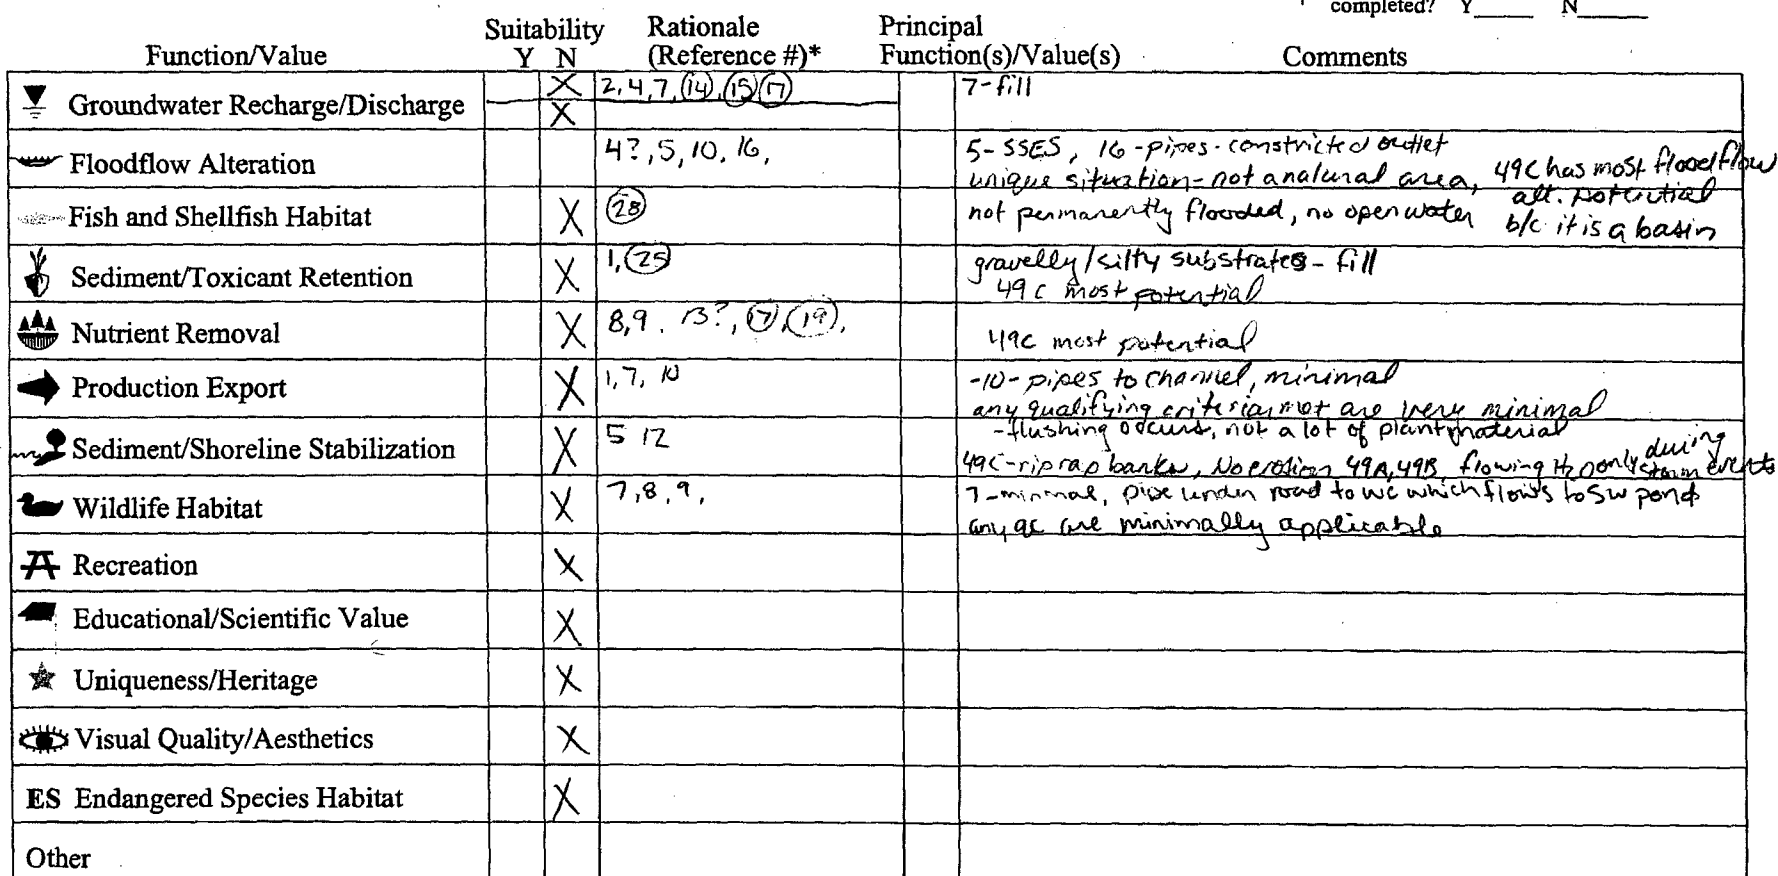 completed? Y_____ N_____
Suitability Rationale Principal
Function/Value Y N (Reference #)* Function(s)/Value(s) Comments
Groundwater Recharge/Discharge X 2, 4, 7, 14, 15, 17 7-fill
X
Floodflow Alteration 4?, 5, 10, 16, 5-SSES, 16-pipes-constricted outlet
unique situation-not a natural area, 49C has most floodflow
alt. potential
b/c it is a basin
Fish and Shellfish Habitat X 28 not permanently flooded, no open water
Sediment/Toxicant Retention X 1, 25 gravelly/silty substrates - fill
49C most potential
Nutrient Removal X 8, 9, 13?, 17, 19, 49C most potential
Production Export X 1, 7, 10 -10-pipes to channel, minimal
any qualifying criteria met are very minimal
-flushing occurs, not a lot of plant material
Sediment/Shoreline Stabilization X 5 12 49C-riprap banks, No erosion 49A, 49B, flowing H2O only during
storm events
Wildlife Habitat X 7, 8, 9, 7-minmal, pipe under road to WC which flows to SW pond
any qc are minimally applicable
Recreation X
Educational/Scientific Value X
Uniqueness/Heritage X
Visual Quality/Aesthetics X
ES Endangered Species Habitat X
Other